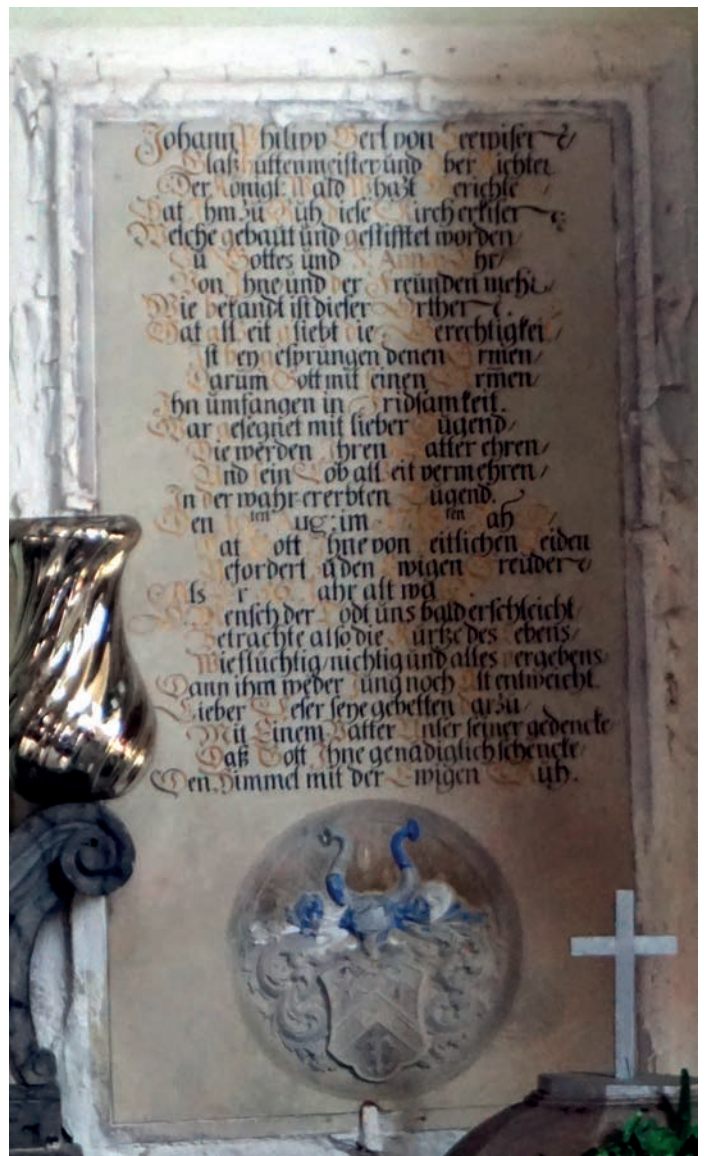 Johann Philipp Gerl von Seewiser
Glaß Hüttenmeister und Ober Richter
Der Königl: Wald Gerichte
Hat Ihm zu Rüh diese Kirch erkiser
Welche gebaut ünd gestifftet worden/
Zu Gottes und S. Anna Ehr/
Von Ihne und der Freünden mehr/
Wie bekandt ist dieser Orther
Hat all Zeit gliebt die Gerechtigkeit/
Ist beygesprungen denen Armen/
Darüm Gott mit seinen Armen/
Ihn ümfangen in Fridsamkeit.
War gesegnet mit lieber Jügend/
Die werden Ihren Vatter ehren/
Und sein Lob all Zeit vermehren/
In der wahr ererbten Tügend.
Den ten Aug: im sten Jah
Hat Gott Ihne von Zeitlichen Leiden
Gefordert Zü den Ewigen Freüder
Als Er Jahr alt wa
Mensch der Todt üns bald erschleicht/
Betrachte also die Kürtze des Lebens/
Wie flüchtig/nichtig ünd alles vergebens
Dann ihm weder Jüng noch Alt entweicht.
Lieber Leser seye gebetten darzü/
Mit Einem Vatter Unser seiner gedencke/
Daß Gott Ihne genädiglich schencke/
Den Himmel mit der Ewigen Rüh.